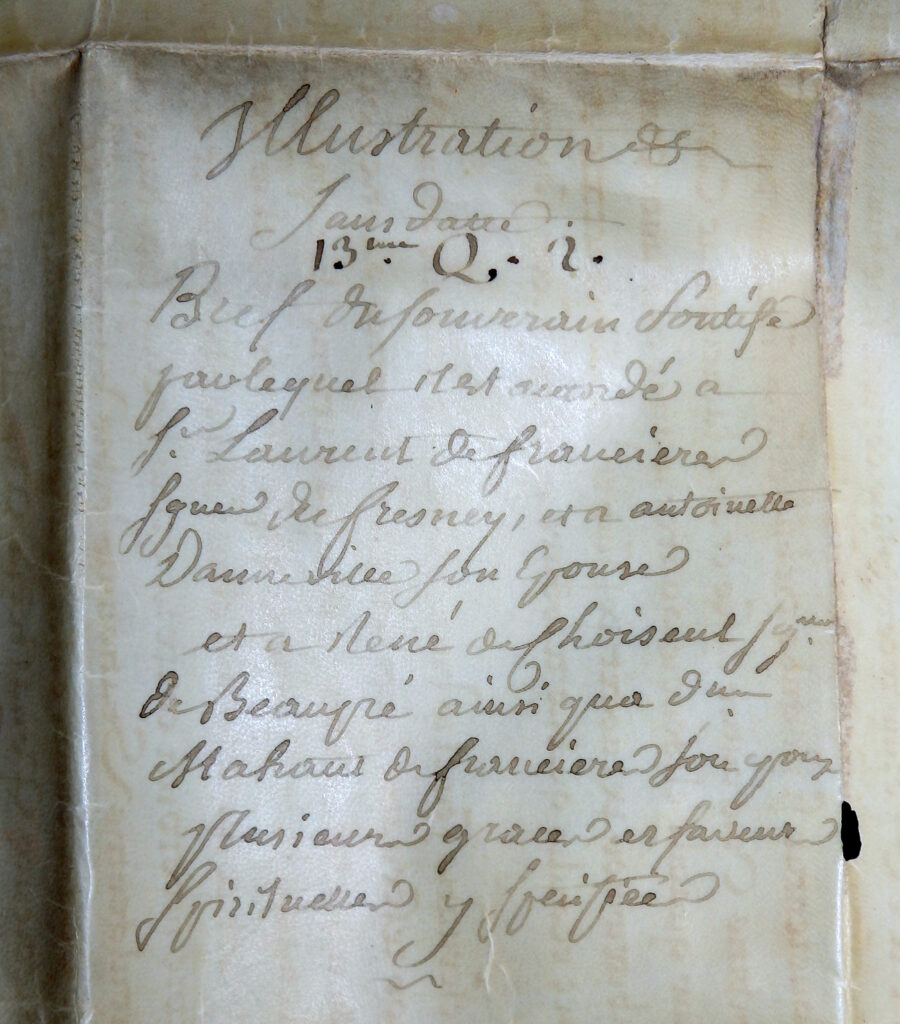 Illustration &&
Sans datte
13.me Q. . 2.
Bref du souverain Pontife
par lequel il est accordé a
Sr. Laurent de francieres
sgneur du fresney, et a antoinette
Danneville son Epouse
et a René de Choiseul sgneur
de Beaupré ainsi qua dme
Mahaut de francieres son epouse
plusieurs graces et faveurs
Spirituelles y specifiées